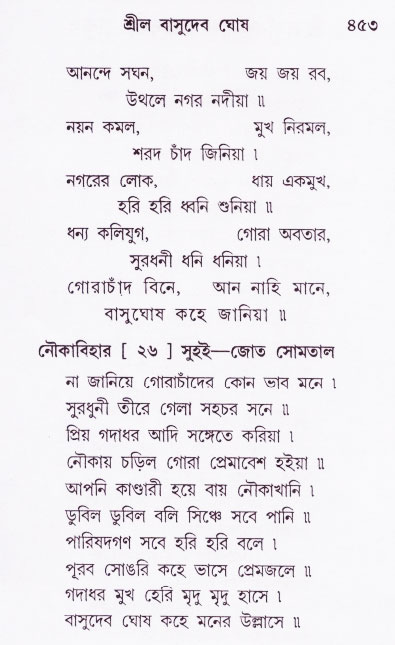 শ্রীল বাসুদেব ঘোষ ৪৫৩
আনন্দে সঘন, জয় জয় রব,
উথলে নগর নদীয়া ॥
নয়ন কমল, মুখ নিরমল,
শরদ চাঁদ জিনিয়া ।
নগরের লোক, ধায় একমুখ,
হরি হরি ধ্বনি শুনিয়া ॥
ধন্য কলিযুগ, গোরা অবতার,
সুরধনী ধনি ধনিয়া ।
গোরাচাঁদ বিনে, আন নাহি মানে,
বাসুঘোষ কহে জানিয়া ॥
নৌকাবিহার [ ২৬ ] সুহই—জোত সোমতাল
না জানিয়ে গোরাচাঁদের কোন ভাব মনে ।
সুরধুনী তীরে গেলা সহচর সনে ॥
প্রিয় গদাধর আদি সঙ্গেতে করিয়া ।
নৌকায় চড়িল গোরা প্রেমাবেশ হইয়া ॥
আপনি কাণ্ডারী হয়ে বায় নৌকাখানি ।
ডুবিল ডুবিল বলি সিঞ্চে সবে পানি ॥
পারিষদগণ সবে হরি হরি বলে ।
পূরব সোঙরি কহে ভাসে প্রেমজলে ॥
গদাধর মুখ হেরি মৃদু মৃদু হাসে ।
বাসুদেব ঘোষ কহে মনের উল্লাসে ॥